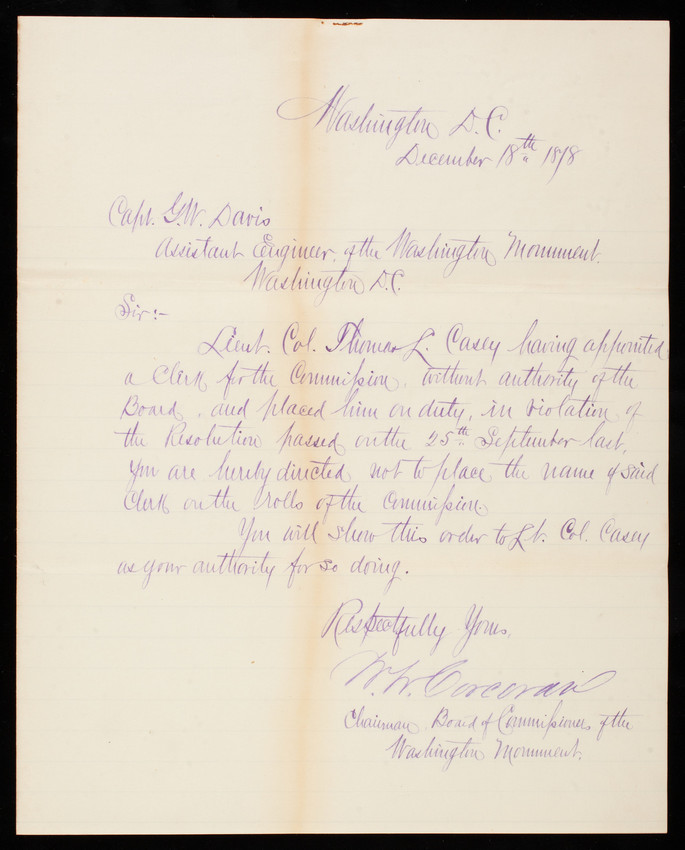 Washington D.C.
December 18th 1878
Capt. G.W. Davis
Assistant Engineer of the Washington Monument.
Washington D.C.
Sir:-
Lieut. Col. Thomas L. Casey having appointed
a Clerk for the Commission, without authority of the
Board, and placed him on duty, in violation of
the Resolution passed on the 25th September last,
you are hereby directed not to place the name of said
Clerk on the rolls of the Commission
You will show this order to Lt. Col. Casey
as your authority for so doing.
Respectfully Yours,
W.W. Corcoran
Chairman Board of Commissioners of the
Washington Monument.